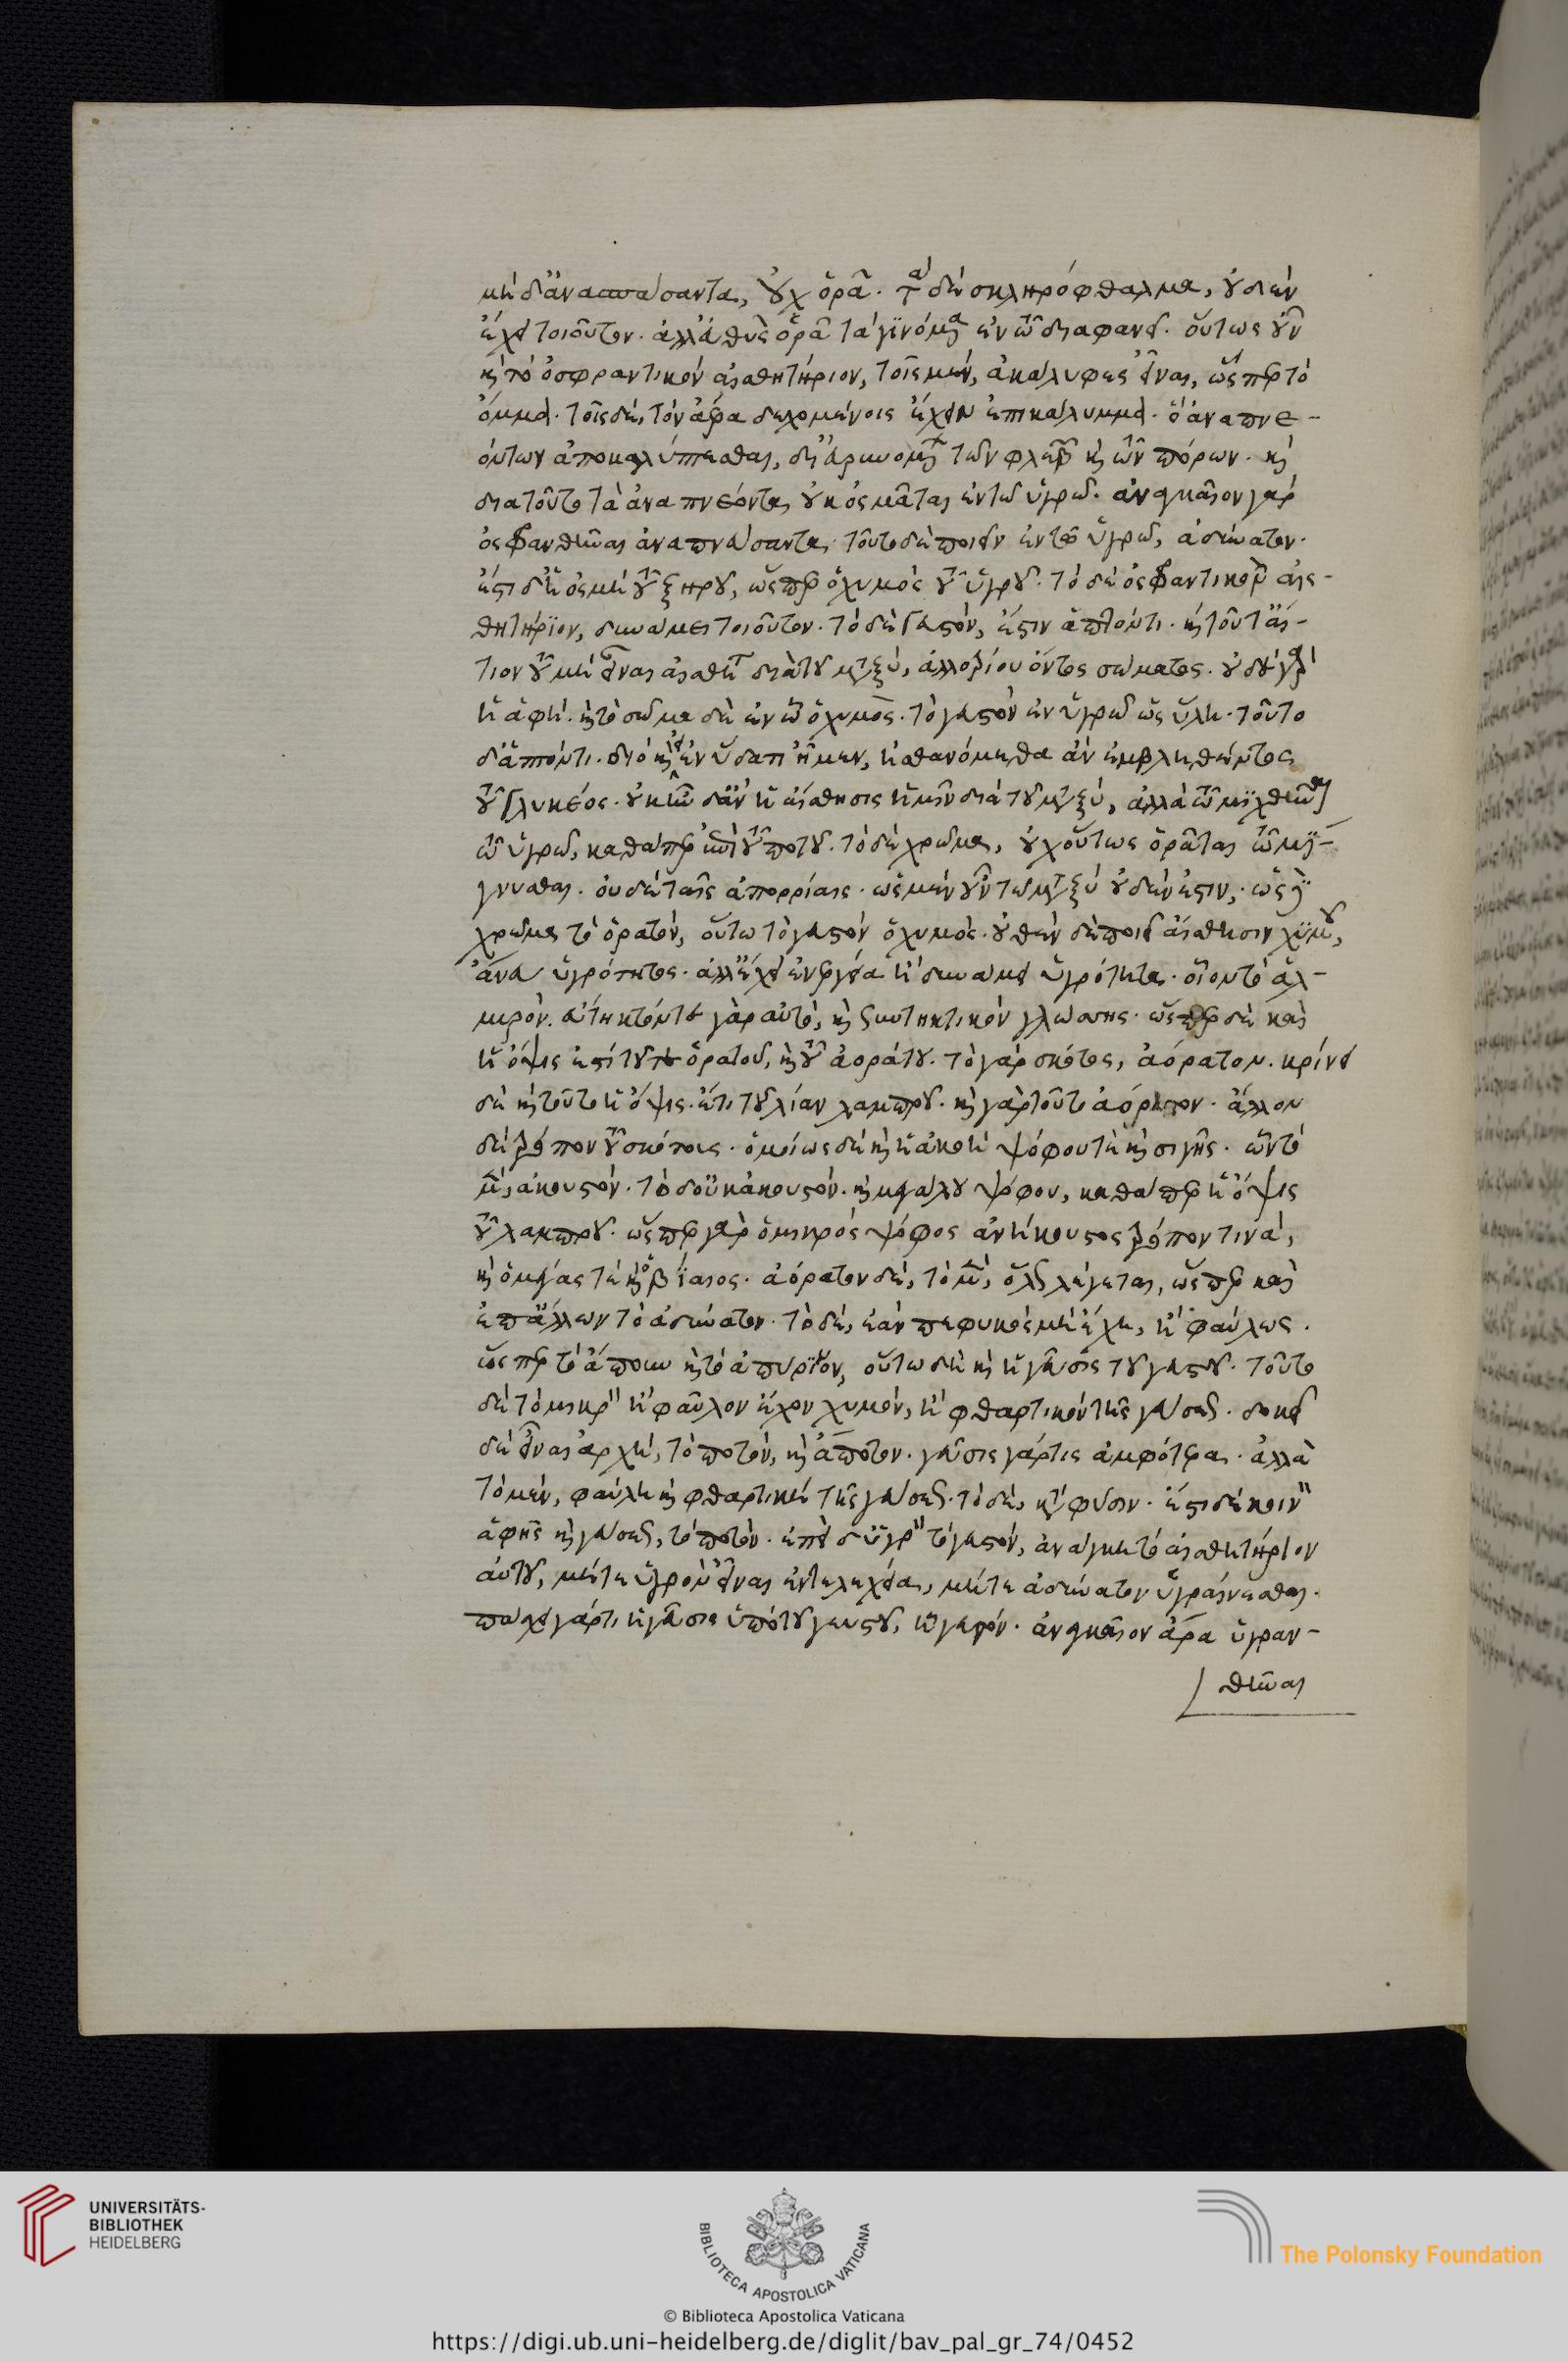 μὴ δ' ἀνασπάσαντα, οὐχ ὁρᾶ. τὰ δὲ σκληρόφθαλμα, οὐδὲν
ἔχει τοιοῦτον. ἀλλ' εὐθὺς ὁρᾶ τὰ γινόμενα ἐν τῶ διαφανεῖ. οὕτως οὖν
καὶ τὸ ὀσφραντικὸν αἰσθητήριον, τοῖς μὲν, ἀκαλυφὲς εἶναι, ὥσπερ τὸ
ὄμμα. τοῖς δὲ, τὸν ἀέρα δεχομένοις ἔχειν ἐπικάλυμμα. ὃ ἀναπνε-
όντων ἀποκαλύπτεσθαι, διευρυνομένων τῶν φλεβῶν καὶ τῶν πόρων. καὶ
διατοῦτο τὰ ἀναπνέοντα οὐκ ὀσμᾶται ἐν τῶ ὑγρῶ. ἀναγκαῖον γὰρ
ὀσφρανθῆναι ἀναπνεύσαντα. τοῦτο δὲ ποιεῖν ἐν τῶ ὑγρῶ, ἀδύνατον.
ἔστι δ' ἡ ὀσμὴ τοῦ ξηροῦ, ὥσπερ ὁ χυμὸς τοῦ ὑγροῦ. τὸ δὲ ὀσφραντικὸν αἰσ-
θητήριον, δυνάμει τοιοῦτον. τὸ δὲ γευστόν, ἐστιν ἁπτόν τι. καὶ τοῦτ' αἴ-
τιον τοῦ μὴ εἶναι αἰσθητὸν διὰ τοῦ μεταξὺ, ἀλλοτρίου ὄντος σώματος. οὐδὲ γὰρ
ἡ ἁφή. καὶ τὸ σῶμα δὲ ἐν ὧ ὁ χυμὸς. τὸ γευστὸν ἐν ὑγρῶ ὡς ὕλη. τοῦτο
δ' ἁπτόν τι. διὸ καὶ εἰ ἐν ὕδατι ἦμεν, ἠσθανόμεθα ἂν ἐμβληθέντος
τοῦ γλυκέος. οὐκ ἦν δ' ἂν ἡ αἴσθησις ἡμῖν διὰ τοῦ μεταξὺ, ἀλλὰ τῶ μιχθῆναι
τῶ ὑγρῶ, καθάπερ ἐπὶ τοῦ ποτοῦ. τὸ δὲ χρῶμα, οὐχ οὕτως ὁρᾶται τῶ μί-
γνυσθαι. οὐδὲ ταῖς ἀπορροίαις. ὡς μὲν οὖν τὸ μεταξὺ οὐδὲν ἐστιν, ὡς δὲ
χρῶμα τὸ ὁρατόν, οὕτω τὸ γευστὸν ὁ χυμός. οὐθὲν δὲ ποιεῖ αἴσθησιν χυμοῦ,
ἄνευ ὑγρότητος. ἀλλ' ἔχει ἐνεργεία ἢ δυνάμει ὑγρότητα. οἷον τὸ ἁλ-
μυρόν. εὔτηκτόν τε γὰρ αὐτὸ, καὶ συντηκτικὸν γλώσσης. ὥσπερ δὲ καὶ
ἡ ὄψις ἐστὶ τοῦ τε ὁρατοῦ, καὶ τοῦ ἀοράτου. τὸ γὰρ σκότος, ἀόρατον. κρίνει
δὲ καὶ τοῦτο ἡ ὄψις. ἔτι τοῦ λίαν λαμπροῦ. καὶ γὰρ τοῦτο ἀόρατον. ἄλλον
δὲ τρόπον τοῦ σκότους. ὁμοίως δὲ καὶ ἡ ἀκοὴ ψόφου τὲ καὶ σιγῆς. ὧν τὸ
μὲν, ἀκουστόν. τὸ δ' οὐκ ἀκουστόν. καὶ μεγάλου ψόφου, καθάπερ ἡ ὄψις
τοῦ λαμπροῦ. ὥσπερ γὰρ ὁ μικρὸς ψόφος ἀνήκουστος τρόπον τινά,
καὶ ὁ μέγας τὲ καὶ ὁ βίαιος. ἀόρατον δὲ, τὸ μὲν, ὅλως λέγεται, ὥσπερ καὶ
ἐπ' ἄλλων τὸ ἀδύνατον. τὸ δὲ, ἐὰν πεφυκὸς μὴ ἔχη, ἢ φαύλως.
ὥσπερ τὸ ἄπουν καὶ τὸ ἀπύρινον, οὕτω δὴ καὶ ἡ γεῦσις τοῦ γευστοῦ. τοῦτο
δὲ τὸ μικρὸν ἢ φαῦλον ἔχον χυμόν, ἢ φθαρτικὸν τῆς γεύσεως. δοκεῖ
δὲ εἶναι ἀρχὴ, τὸ ποτόν, καὶ ἄποτον. γεῦσις γάρ τις ἀμφότερα. ἀλλὰ
τὸ μέν, φαύλη καὶ φθαρτικὴ τῆς γεύσεως. τὸ δὲ, κατὰ φύσιν. ἔστι δὲ κοινὸν
ἁφῆς καὶ γεύσεως, τὸ ποτόν. ἐπεὶ δ' ὑγρὸν τὸ γευστόν, ἀνάγκη τὸ αἰσθητήριον
αὐτοῦ, μήτε ὑγρὸν εἶναι ἐντελεχεία, μήτε ἀδύνατον ὑγραίνεσθαι.
πάσχει γάρ τι ἡ γεῦσις ὑπὸ τοῦ γευστοῦ, ἧ γευστόν. ἀναγκαῖον ἄρα ὑγραν-
θῆναι
UNIVERSITÄTS-
BIBLIOTHEK
HEIDELBERG
BIBLIOTECA APOSTOLICA VATICANA
The Polonsky Foundation
© Biblioteca Apostolica Vaticana
https://digi.ub.uni-heidelberg.de/diglit/bav_pal_gr_74/0452